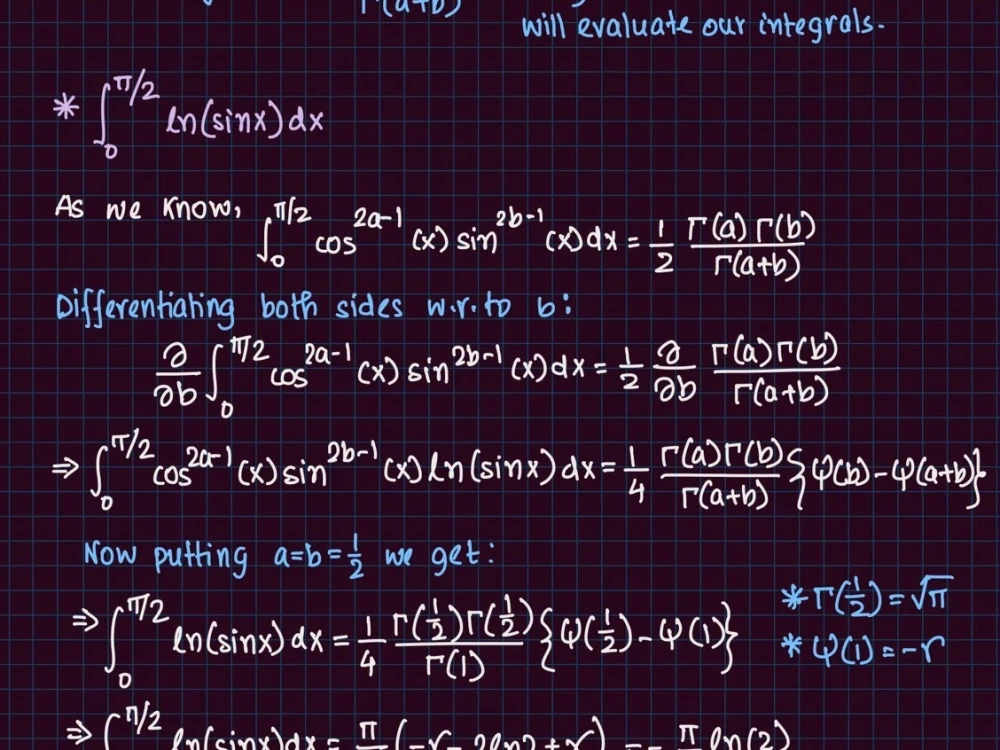 Γ(a+b)
will evaluate our integrals.
* ∫₀^{π/2} ln(sinx) dx
As we know, ∫₀^{π/2} cos^{2a-1}(x) sin^{2b-1}(x) dx = 1/2 Γ(a)Γ(b)/Γ(a+b)
Differentiating both sides w.r.to b:
∂/∂b ∫₀^{π/2} cos^{2a-1}(x) sin^{2b-1}(x) dx = 1/2 ∂/∂b Γ(a)Γ(b)/Γ(a+b)
⇒ ∫₀^{π/2} cos^{2a-1}(x) sin^{2b-1}(x) ln(sinx) dx = 1/4 Γ(a)Γ(b)/Γ(a+b) {ψ(b)-ψ(a+b)}
Now putting a=b=1/2 we get:
⇒ ∫₀^{π/2} ln(sinx) dx = 1/4 Γ(1/2)Γ(1/2)/Γ(1) {ψ(1/2)-ψ(1)}
* Γ(1/2) = √π
* ψ(1) = -γ
⇒ ∫^{π/2} ln(sinx) dx = π (-γ - 2ln2 + γ) = - π ln(2)